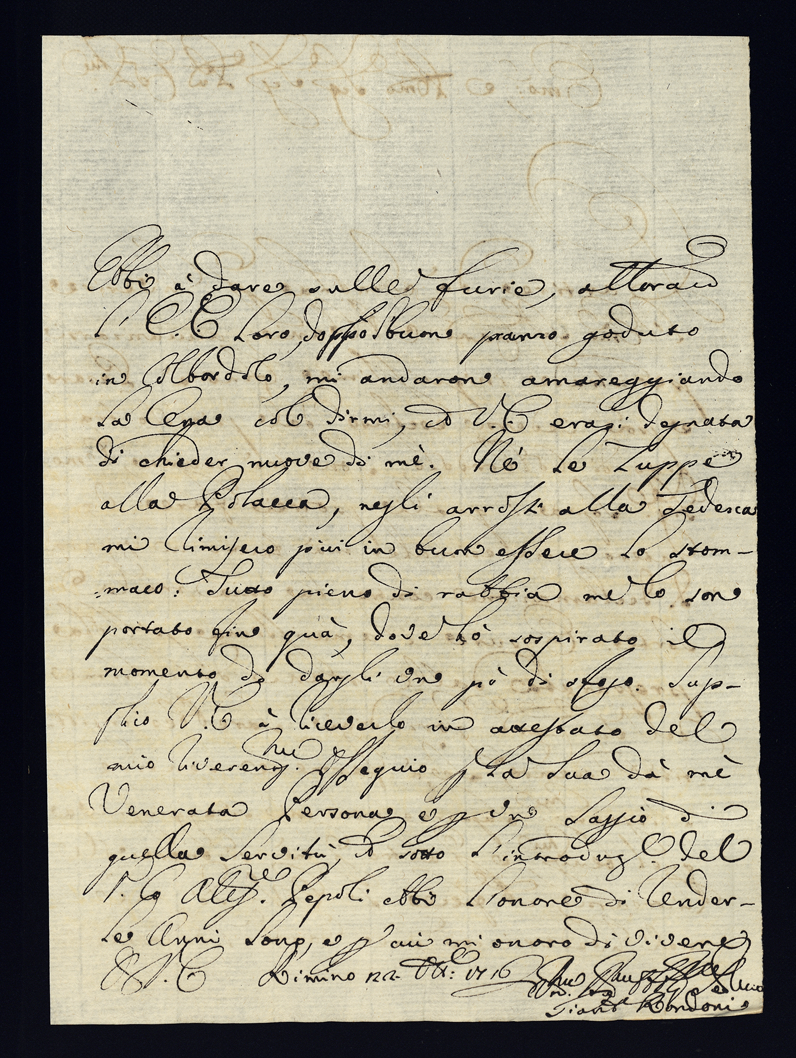 Ebbi à dare sulle furie, allorche
l'E.E. Loro, doppo buon pranzo goduto
in Albordolo, mi andarono amareggiando
la Cena col dirmi, ch V.E. erasi degnata
di chieder nuove di mè. Nè le Zuppe
alla Polacca, nè gli arrosti alla Tedesca
mi rimisero più in buon essere lo stom-
maco. Tutto pieno di rabbia me lo son
portato fin quà, dove hò sospirato il
momento di dargli un pò di sfogo. Sup-
plico V.E. à riceverlo in attestato del
mio riverentis.mo Ossequio p la Sua da mè
Venerata Persona e p un Saggio di
quella Servitù, ch sotto l'introduz.e del
S. Co. Aless.o Pepoli ebbi l'onore di render-
le Anni sono, e p cui mi onoro di vivere
D V.E. Rimino 22. Ott.e 1716
Rondoni